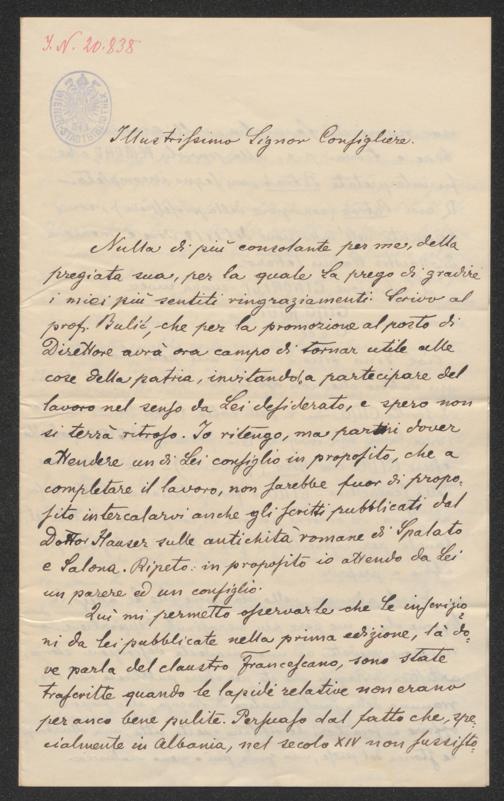 I. N. 20.838
WIENER STADTBIBLIOTHEK
Illustrissimo Signor Consigliere.
Nulla di più consolante per me, della
pregiata sua, per la quale La prego di gradire
i miei più sentiti ringraziamenti. Scrivo al
prof. Bulić, che per la promozione al posto di
Direttore avrà ora campo di tornar utile alle
cose della patria, invitandolo a partecipare del
lavoro nel senso da Lei desiderato, e spero non
si terrà ritroso. Io ritengo, ma parmi dover
attendere un di Lei consiglio in proposito, che a
completare il lavoro, non sarebbe fuor di propo-
sito intercalarvi anche gli scritti pubblicati dal
Dottor Hauser sulle antichità romane di Spalato
e Salona. Ripeto: in proposito io attendo da Lei
un parere ed un consiglio.
Quì mi permetto osservarle che le inscrizio-
ni da lei pubblicate nella prima edizione, là do-
ve parla del claustro Francescano, sono state
trascritte quando le lapidi relative non erano
per anco bene pulite. Persuaso dal fatto che, spe-
cialmente in Albania, nel secolo XIV non sussisto-